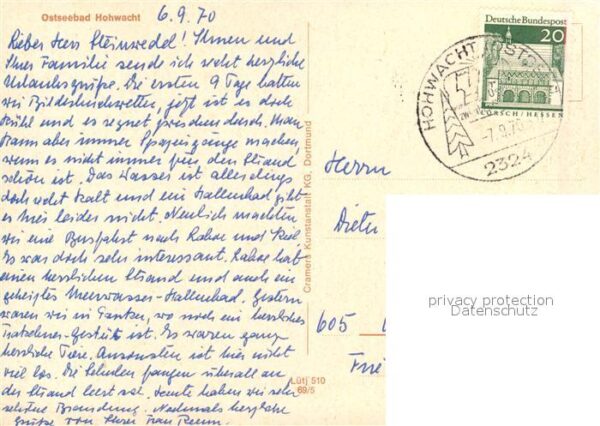 Ostseebad Hohwacht
6.9.70
Lieber Herr Steinwedel! Ihnen und
Ihrer Familie sende ich recht herzliche
Urlaubsgrüße. Die ersten 9 Tage hatten
wir Bilderbuchwetter, jetzt ist es doch
kühl und es regnet zwischendurch. Man
kann aber immer Spaziergänge machen,
wenn es nicht immer für den Strand
schön ist. Das Wasser ist allerdings
doch recht kalt und ein Hallenbad gibt
es hier leider nicht. Neulich machten
wir eine Busfahrt nach Laboe und Kiel.
Es war doch sehr interessant. Laboe hat
einen herrlichen Strand und auch ein
geheiztes Meerwasser-Hallenbad. Gestern
waren wir in Panker, wo noch ein herrliches
Trakehner-Gestüt ist. Es waren ganz
herrliche Tiere. Ansonsten ist hier nicht
viel los. Die Schulen fangen überall an
der Strand leert sich. Heute haben wir sehr
schöne Brandung. Nochmals herzliche
Grüße von Ihrer Frau
Cramers Kunstanstalt KG, Dortmund
Lütj 510
69/5
Deutsche Bundespost
20
LORSCH / HESSEN
HOHWACHT OSTSEE
-7.9.70
2324
Herrn
605
privacy protection
Datenschutz